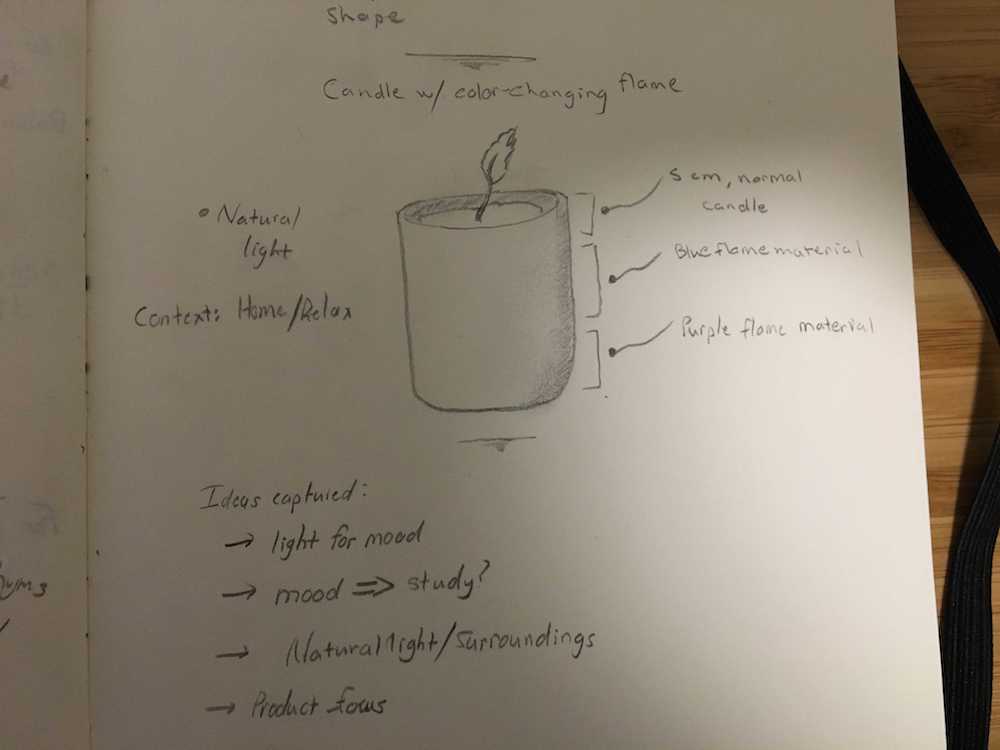 Shape
Candle w/ color-changing flame
• Natural
light
Context: Home/Relax
5 cm, normal
candle
Blue flame material
Purple flame material
Ideas captured:
→ light for mood
→ mood => study?
→ Natural light/Surroundings
→ Product focus